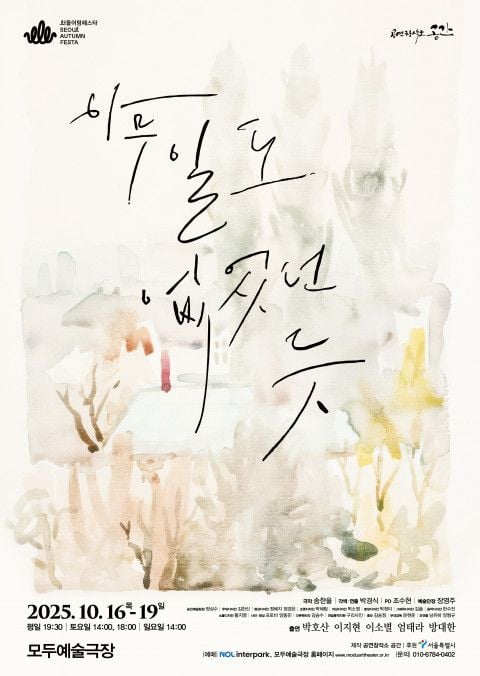 서울어텀페스타
SEOUL
AUTUMN
FESTA
공연창작소 공간
아무 일도
없었던
듯
2025. 10. 16목-19일
평일 19:30 | 토요일 14:00, 18:00 | 일요일 14:00
모두예술극장
극작 송한울 | 각색·연출 박경식 | PD 조수현 | 예술단장 장영주
출연 박호산 이지현 이소별 엄태라 발대한
제작 공연창작소 공간 | 후원 서울특별시
|예매| NOL interpark, 모두예술극장 홈페이지 www.moduarttheater.or.kr |문의| 010-6784-0402